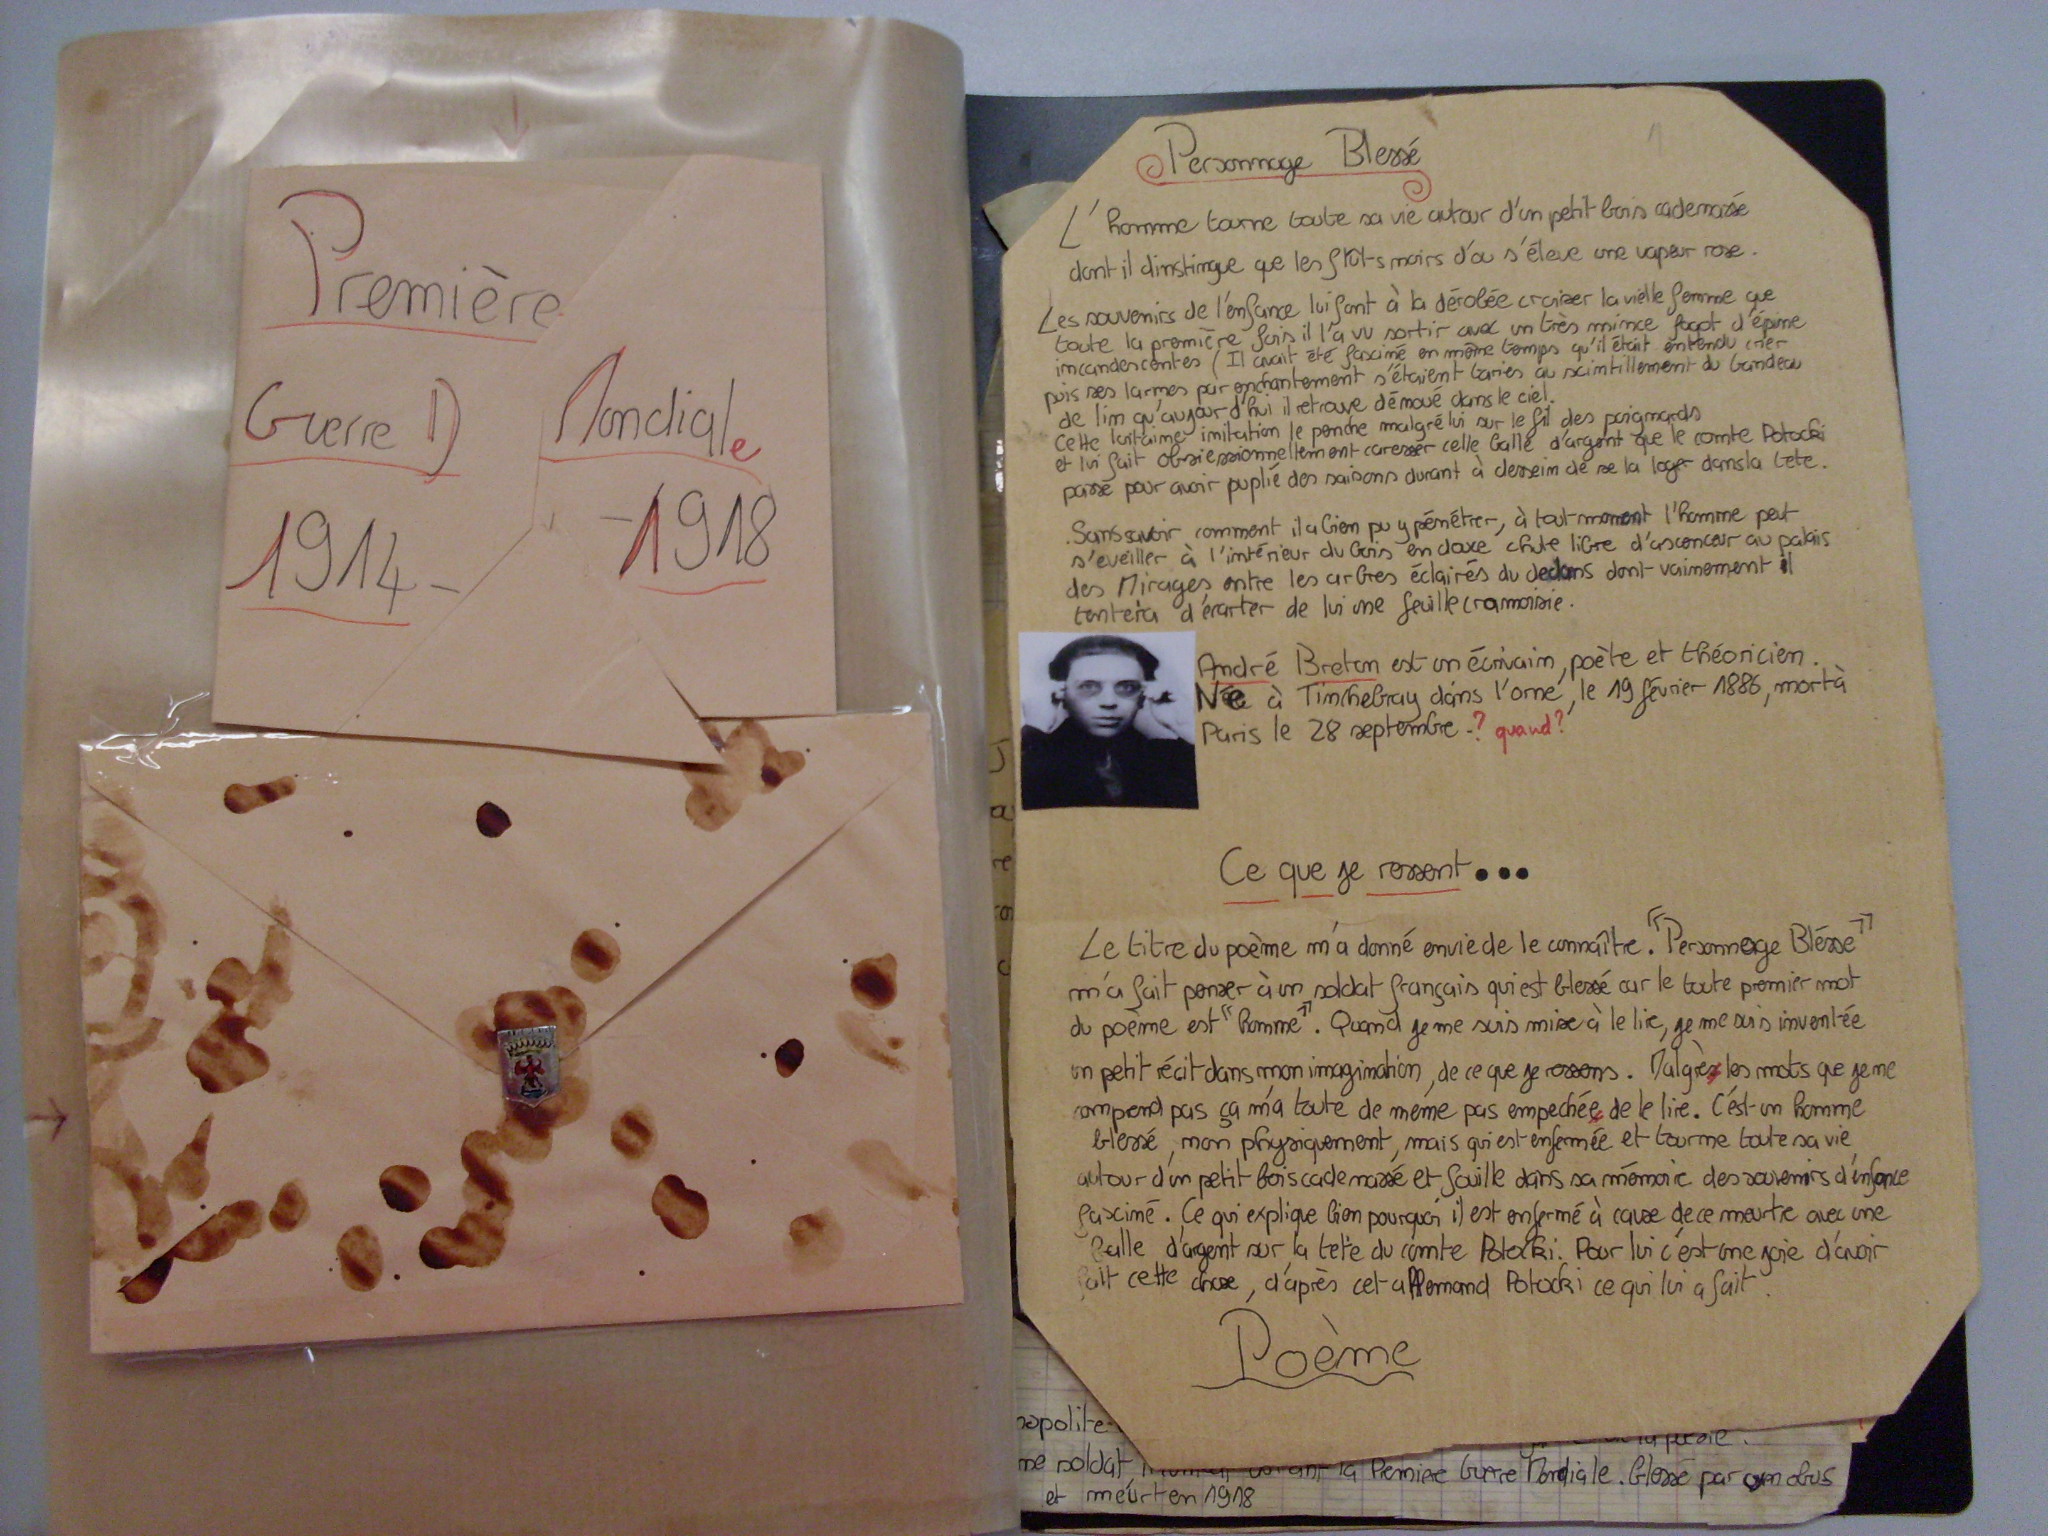 Première
Guerre Mondiale
1914- -1918
Personnage Blessé
L'homme tourne toute sa vie autour d'un petit bois cadenassé
dont il dinstingue que les fûts noirs d'ou s'éleve une vapeur rose.
Les souvenirs de l'enfance lui font à la dérobée croiser la vielle femme que
toute la première fois il l'a vu sortir avec un très mince fagot d'épine
incandescentes (Il avait été fasciné en même temps qu'il était entendu crier
puis ses larmes par enchantement s'étaient taries au scintillement du bandeau
de lin qu'aujourd'hui il retrouve dénoué dans le ciel.
Cette lointaine imitation le penche malgré lui sur le fil des poignards
et lui fait obsiessionnellement caresser celle balle d'argent que le comte Potocki
passe pour avoir puplié des saisons durant à dessein de se la loger dans la tete.
Sans savoir comment il a bien pu y pénétrer, à tout moment l'homme peut
s'eveiller à l'intérieur du bois en douce chute libre d'asconceur au palais
des Mirages entre les arbres éclairés du dedans dont vainement il
tentera d'écarter de lui une feuille cramoisie.
André Breton est un écrivain, poète et théoricien.
Née à Tinchebray dans l'orne, le 19 février 1886, mort à
Paris le 28 septembre -? quand?
Ce que je ressent...
Le titre du poème m'a donné envie de le connaître. "Personnage Bléssé"
m'a fait penser à un soldat français qui est blessé car le toute premier mot
du poème est "homme". Quand je me suis mise à le lire, je me suis inventée
un petit récit dans mon imagination, de ce que je ressens. Malgrès les mots que je me
comprend pas ça m'a toute de même pas empechée de le lire. C'est un homme
blessé, non physiquement, mais qui est enfermée et tourne toute sa vie
autour d'un petit bois cadenassé et fouille dans sa mémoire des souvenirs d'enfance
fasciné. Ce qui explique bien pourquoi il est enfermé à cause de ce meurtre avec une
balle d'argent sur la tete du comte Potocki. Pour lui c'est une joie d'avoir
fait cette chose, d'après cet allemand Potocki ce qui lui a fait.
Poème
soldat la Première Guerre Mondiale. Blessé par un obus
et meurt en 1918